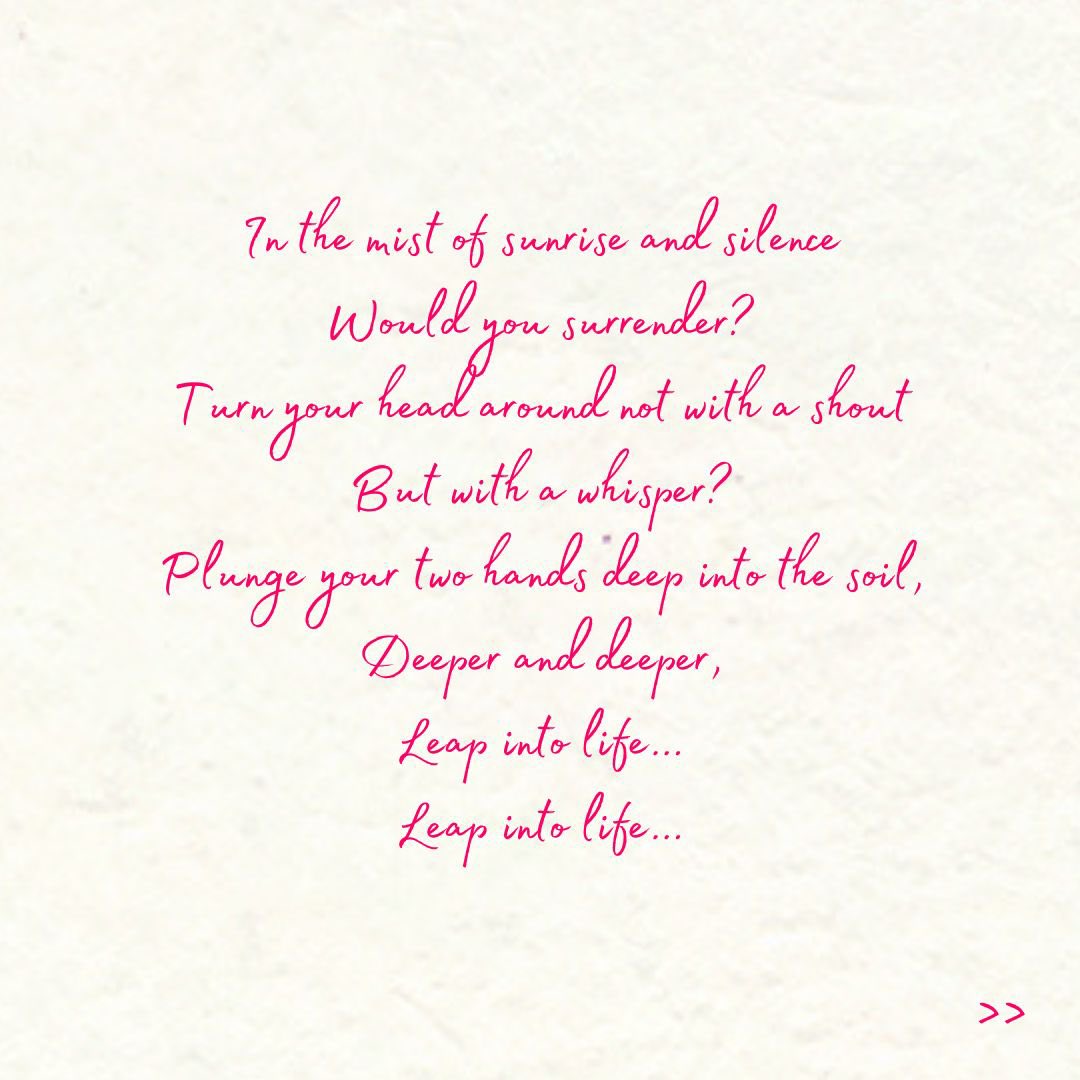 In the mist of sunrise and silence
Would you surrender?
Turn your head around not with a shout
But with a whisper?
Plunge your two hands deep into the soil,
Deeper and deeper,
Leap into life...
Leap into life...
>>